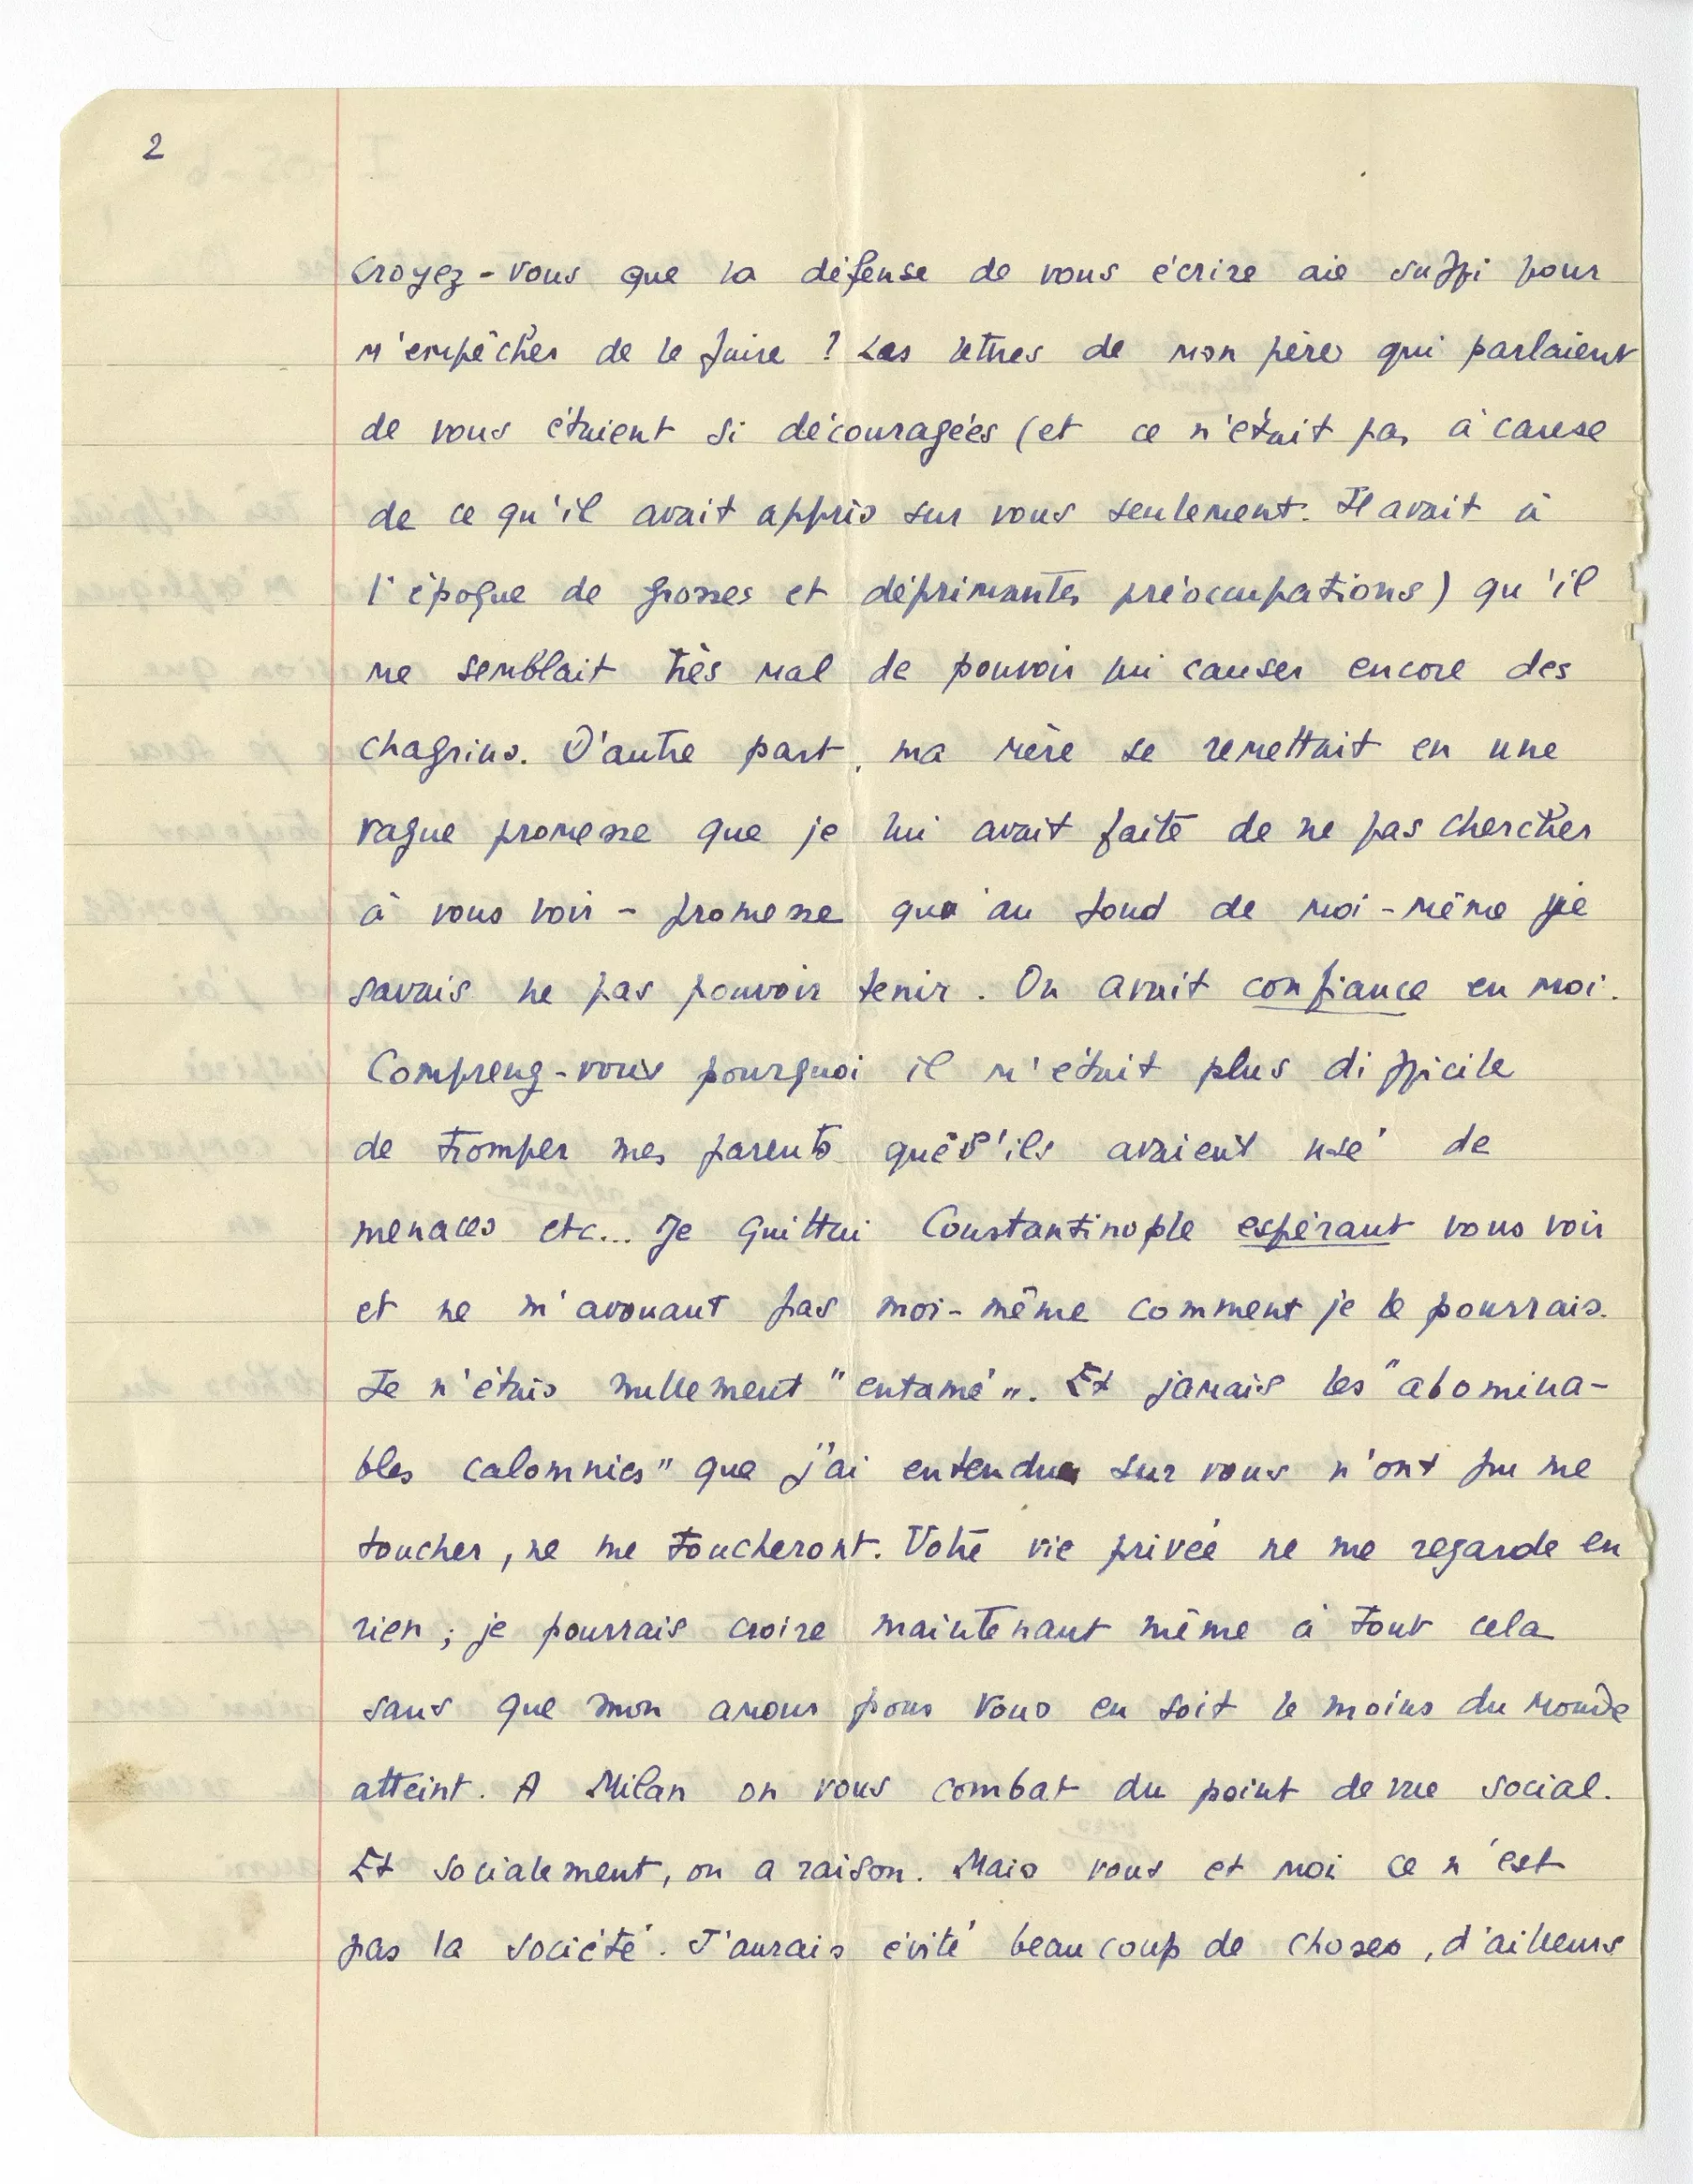 2
Croyez-vous que la défense de vous écrire aie suffi pour
m'empêcher de le faire ? Les lettres de mon père qui parlaient
de vous étaient si découragées (et ce n'était pas à cause
de ce qu'il avait appris sur vous seulement. Il avait à
l'époque de grosses et déprimantes préoccupations) qu'il
me semblait très mal de pouvoir lui causer encore des
chagrins. D'autre part, ma mère se remettait en une
vague promesse que je lui avait faite de ne pas chercher
à vous voir - promesse qu'au fond de moi-même je
savais ne pas pouvoir tenir. On avait confiance en moi.
Comprenez-vous pourquoi il m'était plus difficile
de tromper mes parents que s'ils avaient usé de
menaces etc... Je quittai Constantinople espérant vous voir
et ne m'avouant pas moi-même comment je le pourrais.
Je n'étais nullement "entamé". Et jamais les "abomina-
bles calomnies" que j'ai entendues sur vous n'ont pu me
toucher, ne me toucheront. Votre vie privée ne me regarde en
rien ; je pourrais croire maintenant même à tout cela
sans que mon amour pour vous en soit le moins du monde
atteint. A Milan on vous combat du point de vue social.
Et socialement, on a raison. Mais vous et moi ce n'est
pas la société. J'aurais évité beaucoup de choses, d'ailleurs